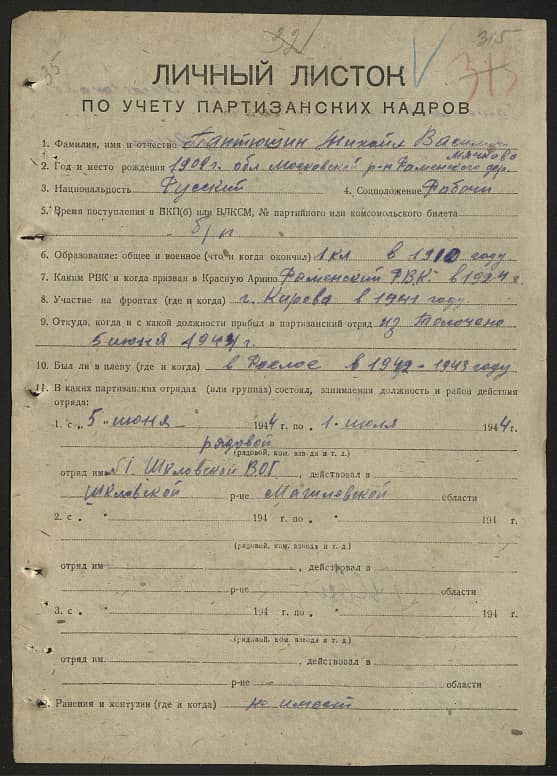 32
315
35
313
ЛИЧНЫЙ ЛИСТОК
ПО УЧЕТУ ПАРТИЗАНСКИХ КАДРОВ
1. Фамилия, имя и отчество Пантюшин Михаил
Мячково
2. Год и место рождения 1909 г. обл. Московской р-н Раменского дер.
3. Национальность Русский 4. Соцположение Рабочи
5. Время поступления в ВКП(б) или ВЛКСМ, № партийного или комсомольского билета
б/п
6. Образование: общее и военное (что и когда окончил) 1 кл в 1910 году
7. Каким РВК и когда призван в Красную Армию Раменский РВК в г.
8. Участие на фронтах (где и когда) г. Кирова в 1941 году
9. Откуда, когда и с какой должности прибыл в партизанский отряд из
5 июня 1944 г.
10. Был ли в плену (где и когда) в в 1942-1943 году
11. В каких партизанских отрядах (или группах) состоял, занимаемая должность и район действия
отряда:
1. с „5" июня 1944 г. по „1" июля 1944 г.
рядовой
(рядовой, ком. взвода и т. д.)
отряд им. №1. Шкловской В.О.Г , действовал в
Шкловской р-не Магилевской области
2. с „ " 194 г. по „ " 194 г.
(рядовой, ком. взвода и т. д.)
отряд им. , действовал в
р-не области
3. с „ " 194 г. по „ " 194 г.
(рядовой, ком. взвода и т. д.)
отряд им. , действовал в
р-не области
Ранения и контузии (где и когда) не имеет